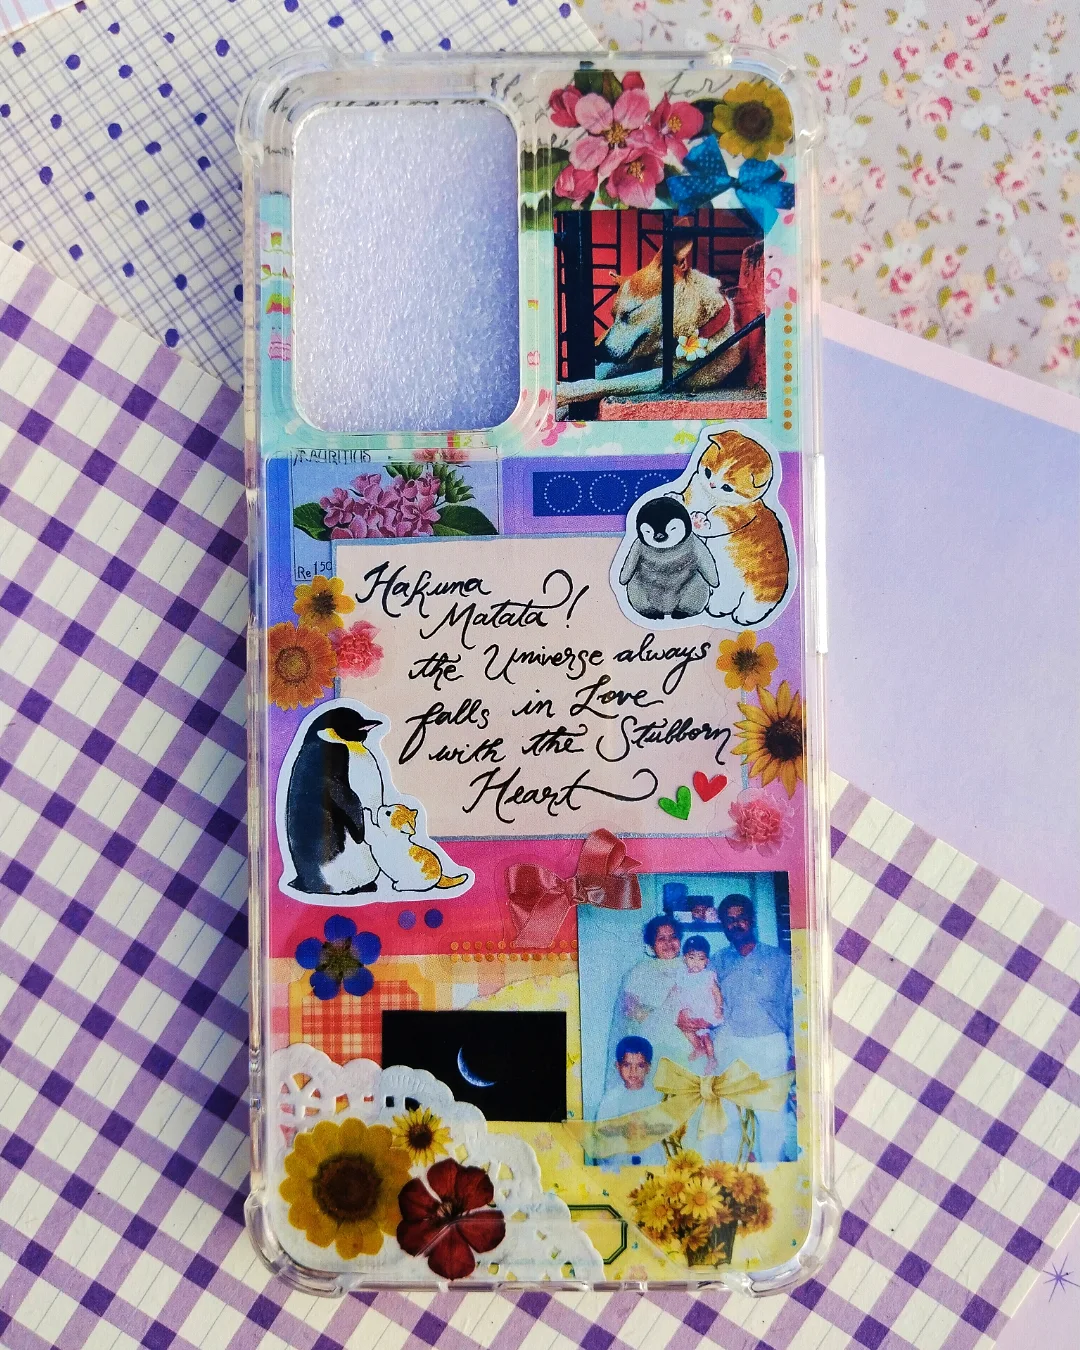 for
MAURITIUS
Re 1.50
Hakuna
Matata!
the Universe always
falls in Love
with the Stubborn
Heart